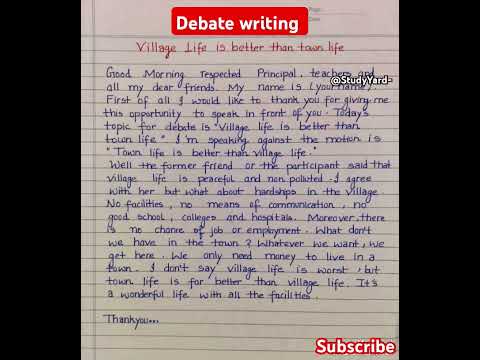 Debate writing
Page:
Date:
Village Life is better than town life
Good Morning respected Principal, teachers and
all my dear friends. My name is (your name).
@StudyYard-
First of all I would like to thank you for giving me
this opportunity to speak in front of you. Today's
topic for debate is "Village life is better than
town life" I'm speaking against the motion is
"Town life is better than village life."
Well the former friend or the participant said that
village life is peaceful and non polluted. I agree
with her but what about hardships in the village.
No facilities, no means of communication, no
good school, colleges and hospitals. Moreover, there
is no chance of job or employment. What don't
we have in the town? Whatever we want, we
get here. We only need money to live in a
town. I don't say village life is worst, but
town life is far better than village life. It's
a wonderful life with all the facilities.
Thankyou...
Subscribe